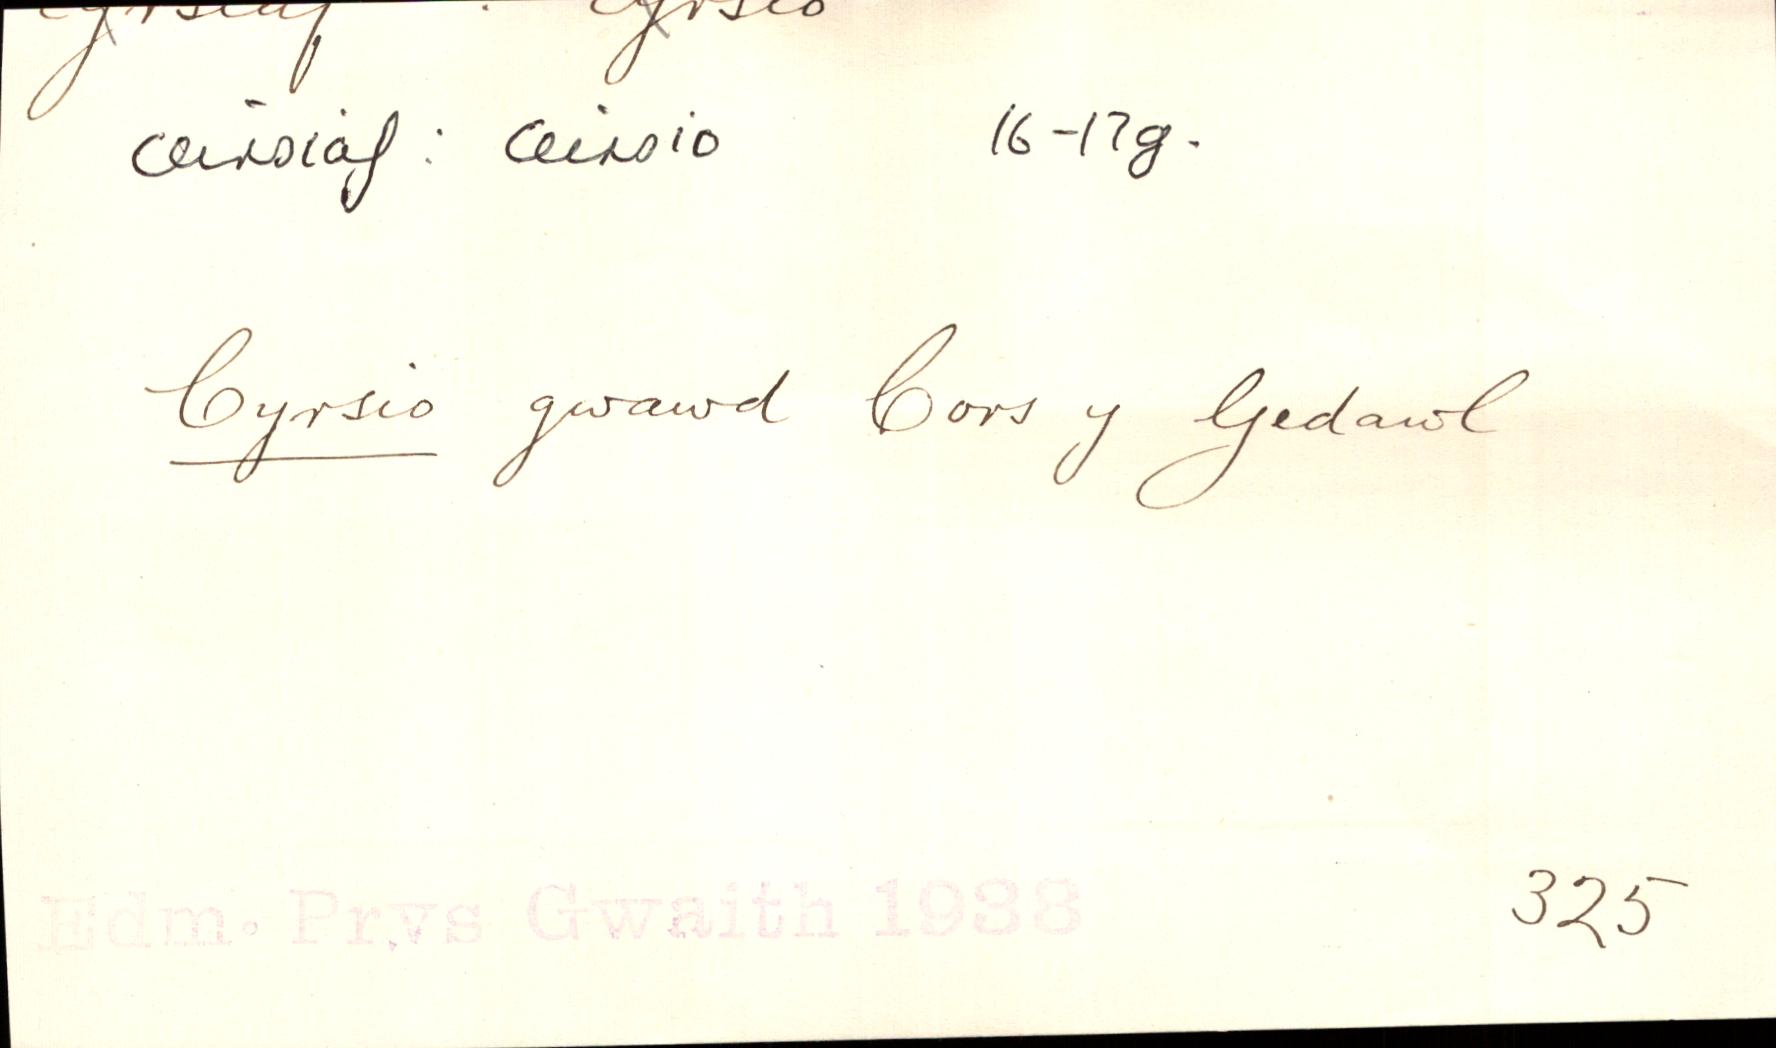 cyrsiaf : cyrsio
ceirsiaf : ceirsio 16-17g.
Cyrsio gwawd Cors y Gedawl
Edm. Prys Gwaith 1938 325